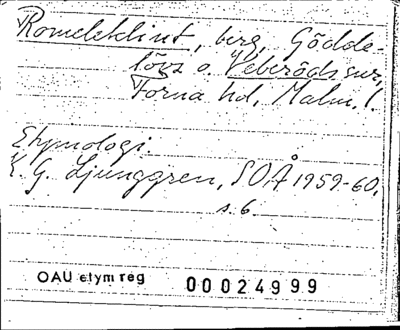 Romeleklint, berg, Gödde-
lövs o. Veberöds snr,
Torna hd, Malm. l.
Etymologi
K. G. Ljunggren, SOÅ 1959-60,
s. 6.
OAU etym reg 00024999